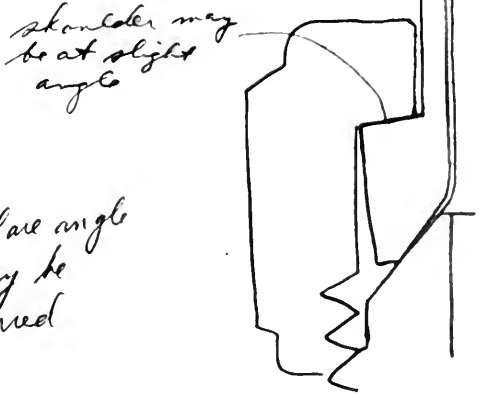 shoulder may
be at slight
angle
angle
be